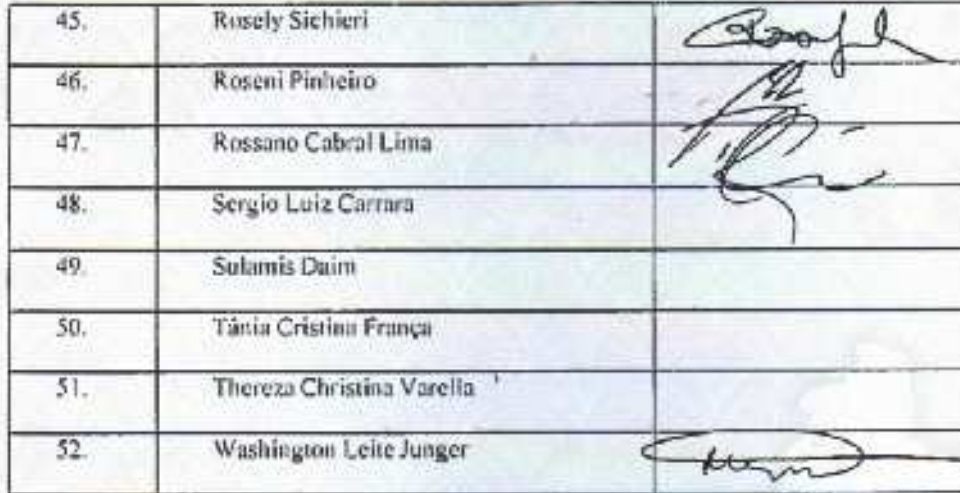 45. Rosely Sichieri
46. Roseni Pinheiro
47. Rossano Cabral Lima
48. Sergio Luiz Carrara
49. Sulamis Daim
50. Tânia Cristina França
51. Thereza Christina Varella
52. Washington Leite Junger